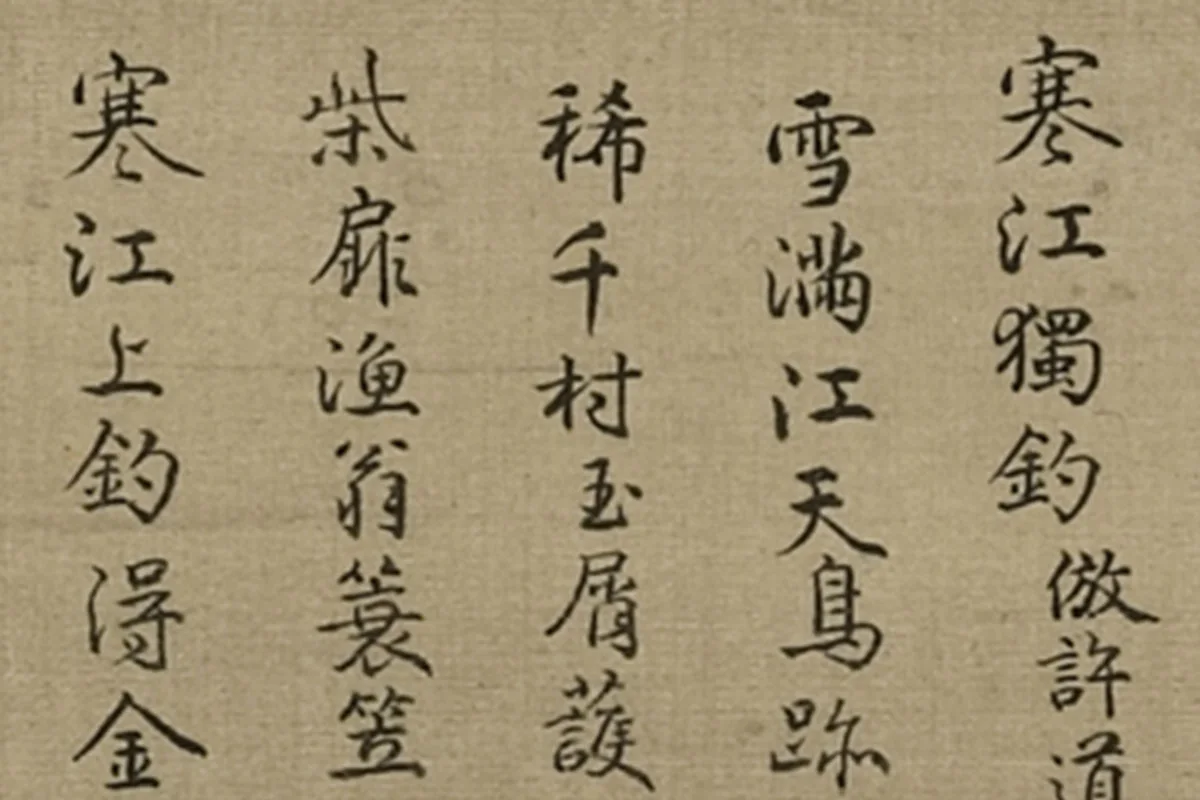 寒江獨釣倣許道
雪滿江天鳥跡
稀千村玉屑護
柴扉漁翁簑笠
寒江上釣得金